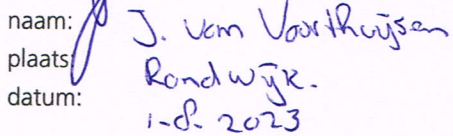 naam: J. van Voorthuijsen
plaats: Randwijk.
datum: 1-8-2023